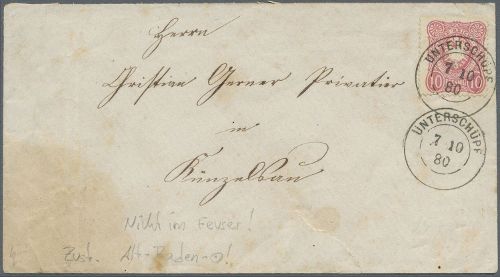 Herrn
Christian Gerner Privatier
in
Künzelsau
10 10
UNTERSCHÜPF
7 10
80
UNTERSCHÜPF
7 10
80
Nicht im Feuser!
Alt-Baden-⊙!